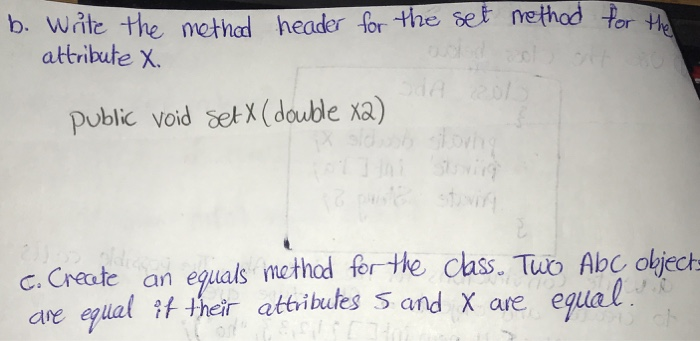 b. Write the method header for the set method for the
attribute X.
public void setX (double x2)
c. Create an equals method for the class. Two Abc objects
are equal if their attributes S and X are equal.